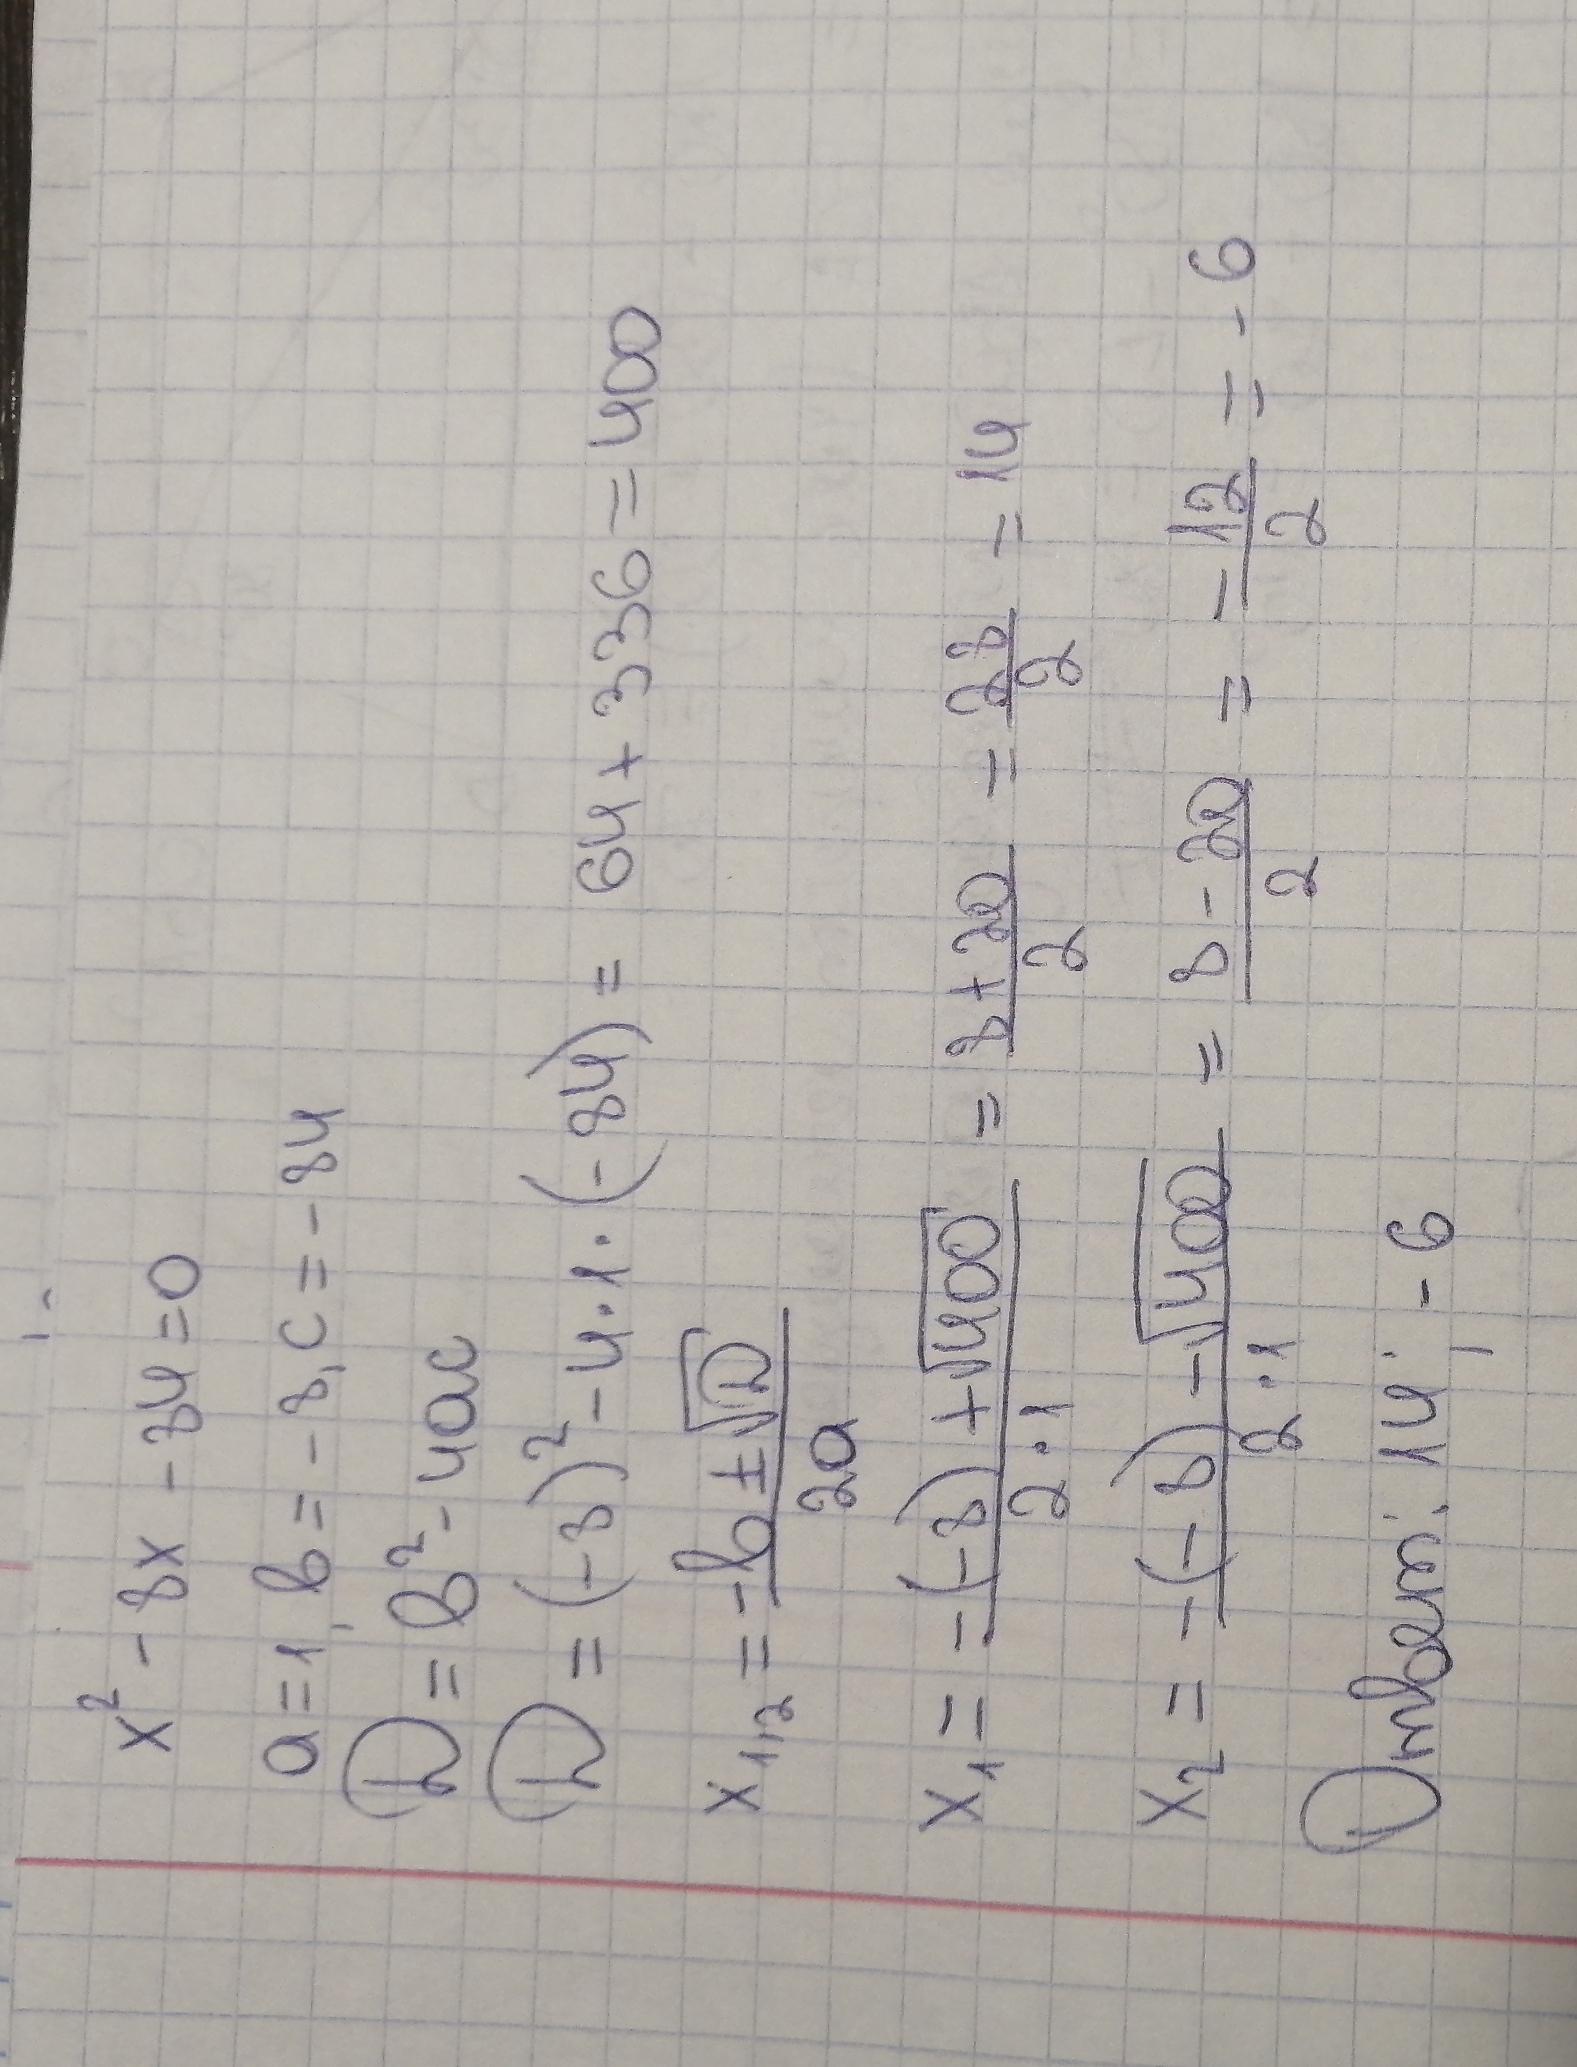 x² - 8x - 84 = 0
a = 1, b = - 8, c = - 84
D = b² - 4ac
D = (-8)² - 4 · 1 · (-84) = 64 + 336 = 400
x₁,₂ = (-b ± √D) / 2a
x₁ = (-(-8) + √400) / (2 · 1) = (8 + 20) / 2 = 28 / 2 = 14
x₂ = (-(-8) - √400) / (2 · 1) = (8 - 20) / 2 = - 12 / 2 = - 6
Ответ: 14; - 6